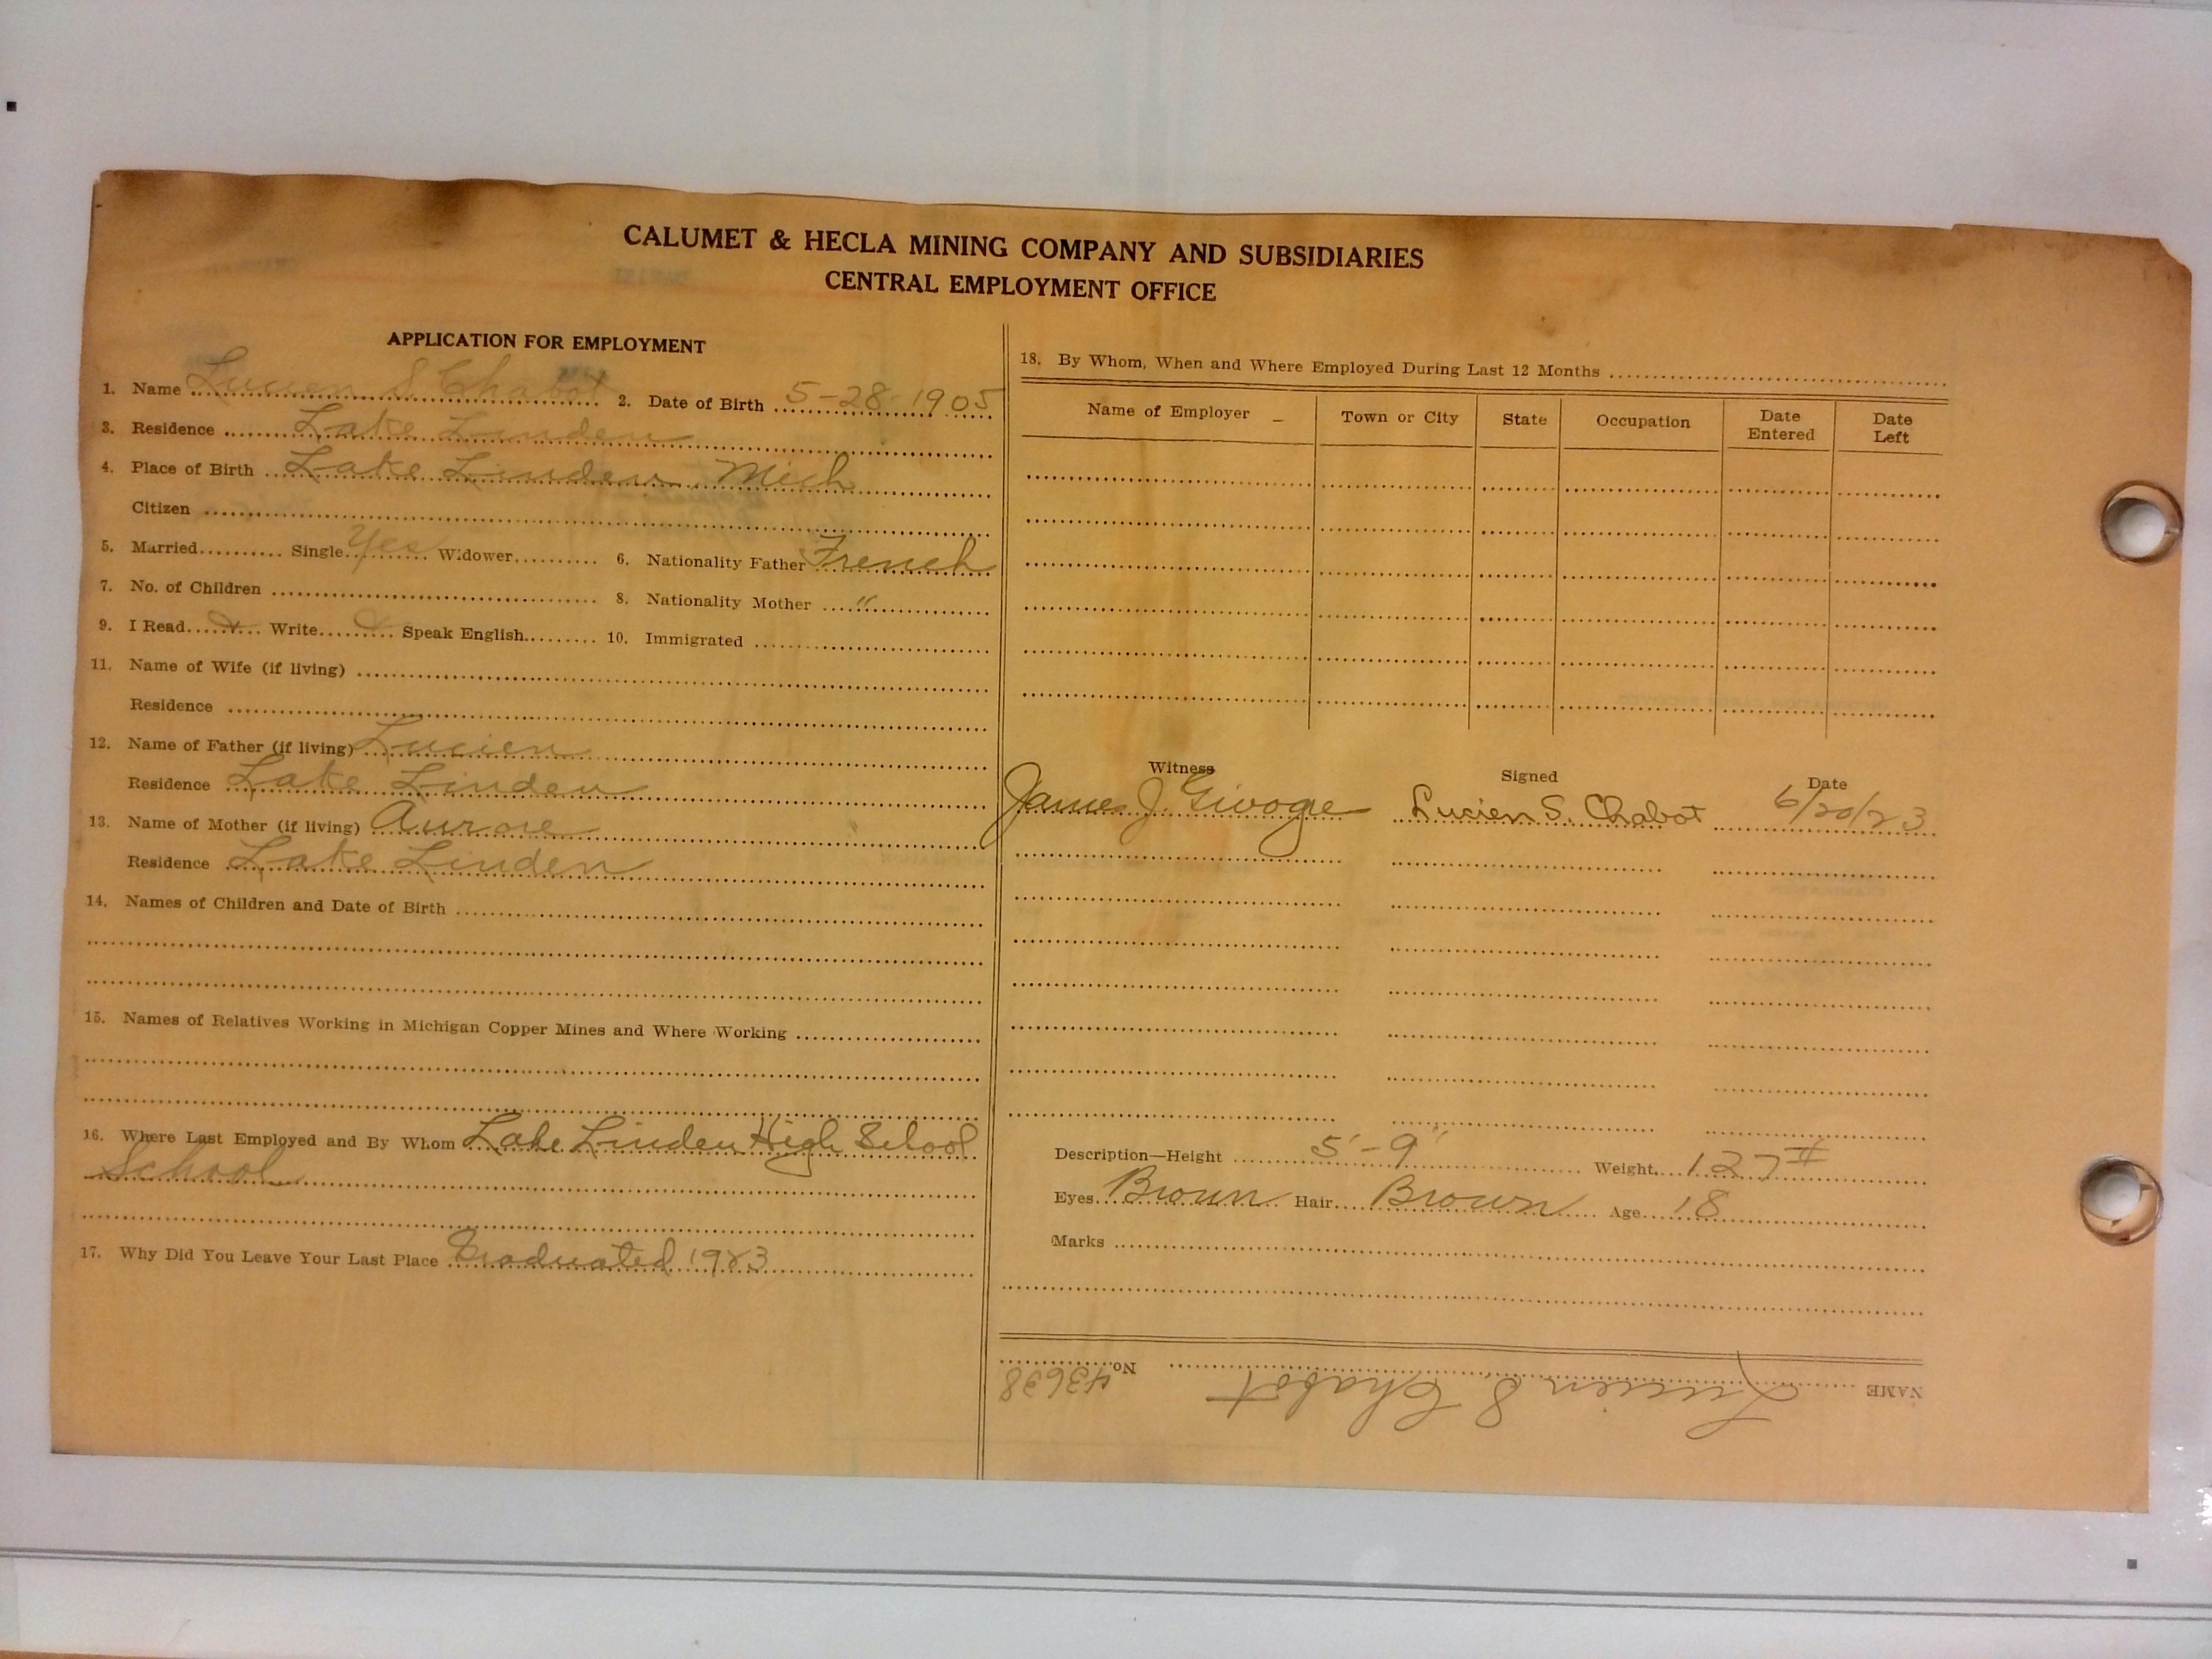 CALUMET & HECLA MINING COMPANY AND SUBSIDIARIES
CENTRAL EMPLOYMENT OFFICE
APPLICATION FOR EMPLOYMENT
1. Name Lucien S. Chabot 2. Date of Birth 5-28-1905
3. Residence Lake Linden
4. Place of Birth Lake Linden Mich
Citizen
5. Married Single Yes Widower 6. Nationality Father French
7. No. of Children 8. Nationality Mother "
9. I Read Write Speak English 10. Immigrated
11. Name of Wife (if living)
Residence
12. Name of Father (if living) Lucien
Residence Lake Linden
13. Name of Mother (if living) Aurore
Residence Lake Linden
14. Names of Children and Date of Birth
15. Names of Relatives Working in Michigan Copper Mines and Where Working
16. Where Last Employed and By Whom Lake Linden High School
School
17. Why Did You Leave Your Last Place Graduated 1923
18. By Whom, When and Where Employed During Last 12 Months
Name of Employer Town or City State Occupation Date Entered Date Left
Witness Signed Date
James J. Lucien S. Chabot 6/20/23
Description—Height 5'-9" Weight 127#
Eyes Brown Hair Brown Age 18
Marks
NAME Lucien S Chabot No. 43638